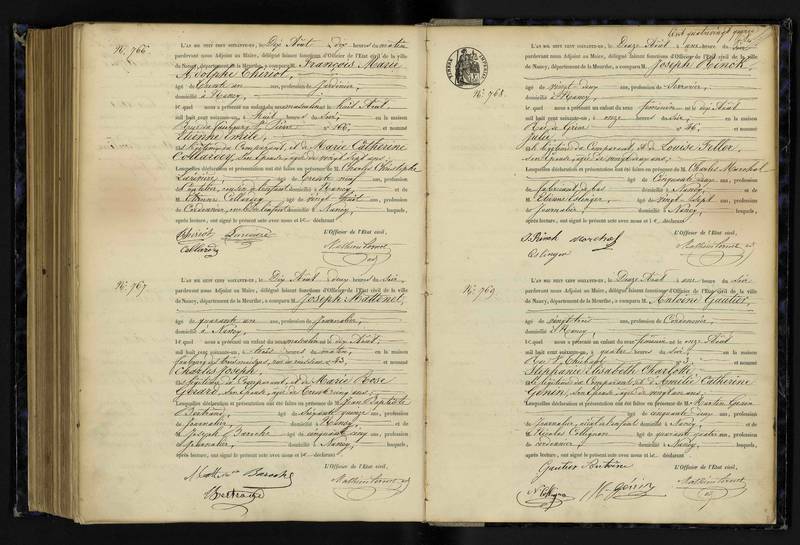 N°. 766.
L'AN MIL HUIT CENT SOIXANTE-UN, le Dix Août Dix heures du matin
pardevant nous Adjoint au Maire, délégué faisant fonctions d'Officier de l'Etat civil de la ville
de Nancy, département de la Meurthe, a comparu M. François Marie
Adolphe Thiriot,
âgé de Trente un ans, profession de Jardinier,
domicilié à Nancy,
lequel nous a présenté un enfant du sexe masculin né le huit Août
mil huit cent soixante-un, à huit heures du soir, en la maison
Rue du faubourg St Pierre n° 166, et nommé
Etienne Emile,
fils légitime du Comparant, et de Marie Catherine
Collardey, son épouse, âgée de vingt sept ans,
Lesquelles déclaration et présentation ont été faites en présence de M. Charles Christophe
âgé de Trente neuf ans, profession
domicilié à Nancy et de
M. Etienne Collardey, âgé de vingt huit ans, profession
de Cordonnier, domicilié à Nancy, lesquels,
après lecture, ont signé le présent acte avec nous et le déclarant
L'Officier de l'Etat civil,
Thiriot
Collardey
N°. 767.
L'AN MIL HUIT CENT SOIXANTE-UN, le Dix Août deux heures du soir
pardevant nous Adjoint au Maire, délégué faisant fonctions d'Officier de l'Etat civil de la ville
de Nancy, département de la Meurthe, a comparu M. Joseph
âgé de quarante un ans, profession de Journalier,
domicilié à Nancy,
lequel nous a présenté un enfant du sexe masculin né le Dix Août
mil huit cent soixante-un, à trois heures du matin, en la maison
faubourg des trois maisons, n° 43,
Charles Joseph,
fils légitime du Comparant et de Marie Rose
Gérard, son épouse, âgée de Trente cinq ans,
Lesquelles déclaration et présentation ont été faites en présence de M. Jean Baptiste
Bertrand, âgé de Soixante quinze ans, profession
de Journalier, domicilié à Nancy, et de
M. Joseph Baroche âgé de cinquante cinq ans, profession
de Journalier, domicilié à Nancy, lesquels,
après lecture, ont signé le présent acte avec nous et le déclarant
L'Officier de l'Etat civil,
Baroche
Bertrand
N°. 768.
L'AN MIL HUIT CENT SOIXANTE-UN, le Douze Août une heure du soir
pardevant nous Adjoint au Maire, délégué faisant fonctions d'Officier de l'Etat civil de la ville
de Nancy, département de la Meurthe, a comparu M. Joseph Rinck,
âgé de vingt deux ans, profession de Serrurier,
domicilié à Nancy,
lequel nous a présenté un enfant du sexe féminin né le dix Août
mil huit cent soixante-un, à onze heures du soir, en la maison
n° 36, et nommé
Julie,
fille légitime du Comparant et de Louise Feller,
son épouse, âgée de vingt deux ans,
Lesquelles déclaration et présentation ont été faites en présence de M. Charles Marchal
âgé de Cinquante deux ans, profession
de fabricant de bas domicilié à Nancy, et de
M. Etienne Eslinger, âgé de vingt sept ans, profession
de Journalier, domicilié à Nancy, lesquels,
après lecture, ont signé le présent acte avec nous et le déclarant
L'Officier de l'Etat civil,
J. Rinck Marchal
Eslinger
N°. 769.
L'AN MIL HUIT CENT SOIXANTE-UN, le Douze Août une heure du soir
pardevant nous Adjoint au Maire, délégué faisant fonctions d'Officier de l'Etat civil de la ville
de Nancy, département de la Meurthe, a comparu M. Antoine Gautier,
âgé de vingt trois ans, profession de Cordonnier,
domicilié à Nancy,
lequel nous a présenté un enfant du sexe féminin né le onze Août
mil huit cent soixante-un, à quatre heures du soir, en la maison
Rue St Thiébaut n° 3,
Stéphanie Elisabeth Charlotte,
fille légitime du Comparant et d'Amélie Catherine
Génin, son épouse, âgée de vingt un ans,
Lesquelles déclaration et présentation ont été faites en présence de M. Martin Génin
âgé de cinquante deux ans, profession
de Journalier, aïeul de l'enfant domicilié à Nancy, et de
M. Nicolas Collignon âgé de quarante quatre ans, profession
de cordonnier domicilié à Nancy, lesquels,
après lecture, ont signé le présent acte avec nous et le déclarant
L'Officier de l'Etat civil,
Gautier Antoine
M. Génin